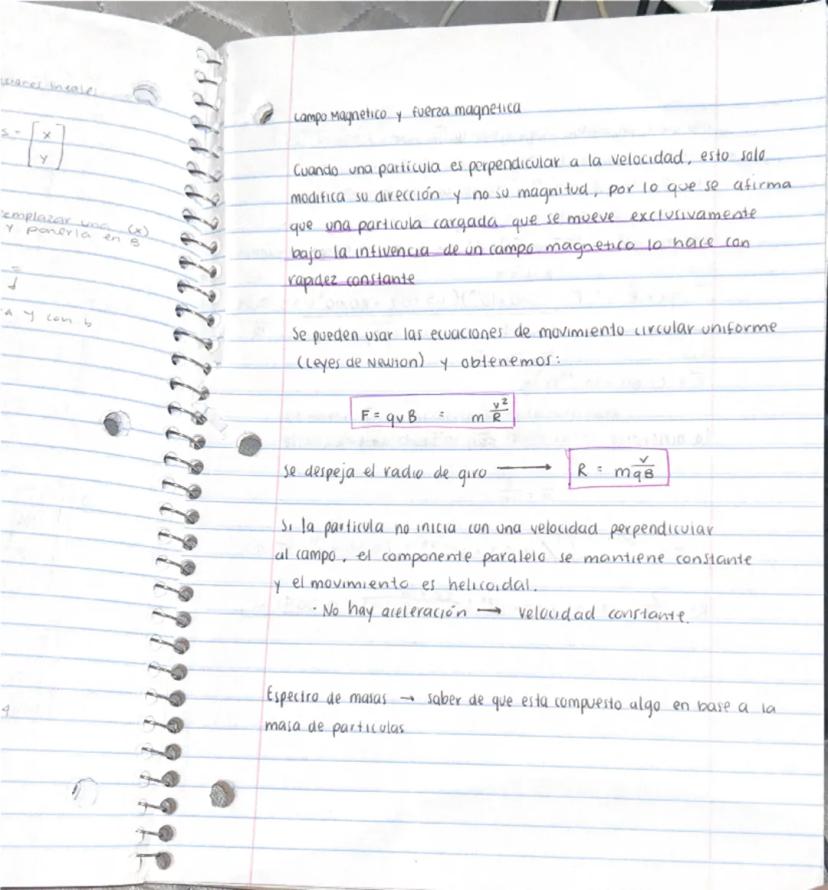 s = [x
y]
emplazar una (x)
y ponerla en B
a y con b
Campo Magnetico y fuerza magnetica
Cuando una particula es perpendicular a la velocidad, esto solo
modifica su dirección y no su magnitud, por lo que se afirma
que una particula cargada que se mueve exclusivamente
bajo la influencia de un campo magnetico lo hace con
rapidez constante
Se pueden usar las ecuaciones de movimiento circular uniforme
(Leyes de Newton) y obtenemos:
F = qvB = m v²/R
se despeja el radio de giro → R = m v/qB
Si la particula no inicia con una velocidad perpendicular
al campo, el componente paralelo se mantiene constante
y el movimiento es helicoidal.
· No hay aceleración → velocidad constante.
Espectro de masas → saber de que esta compuesto algo en base a la
masa de particulas
4